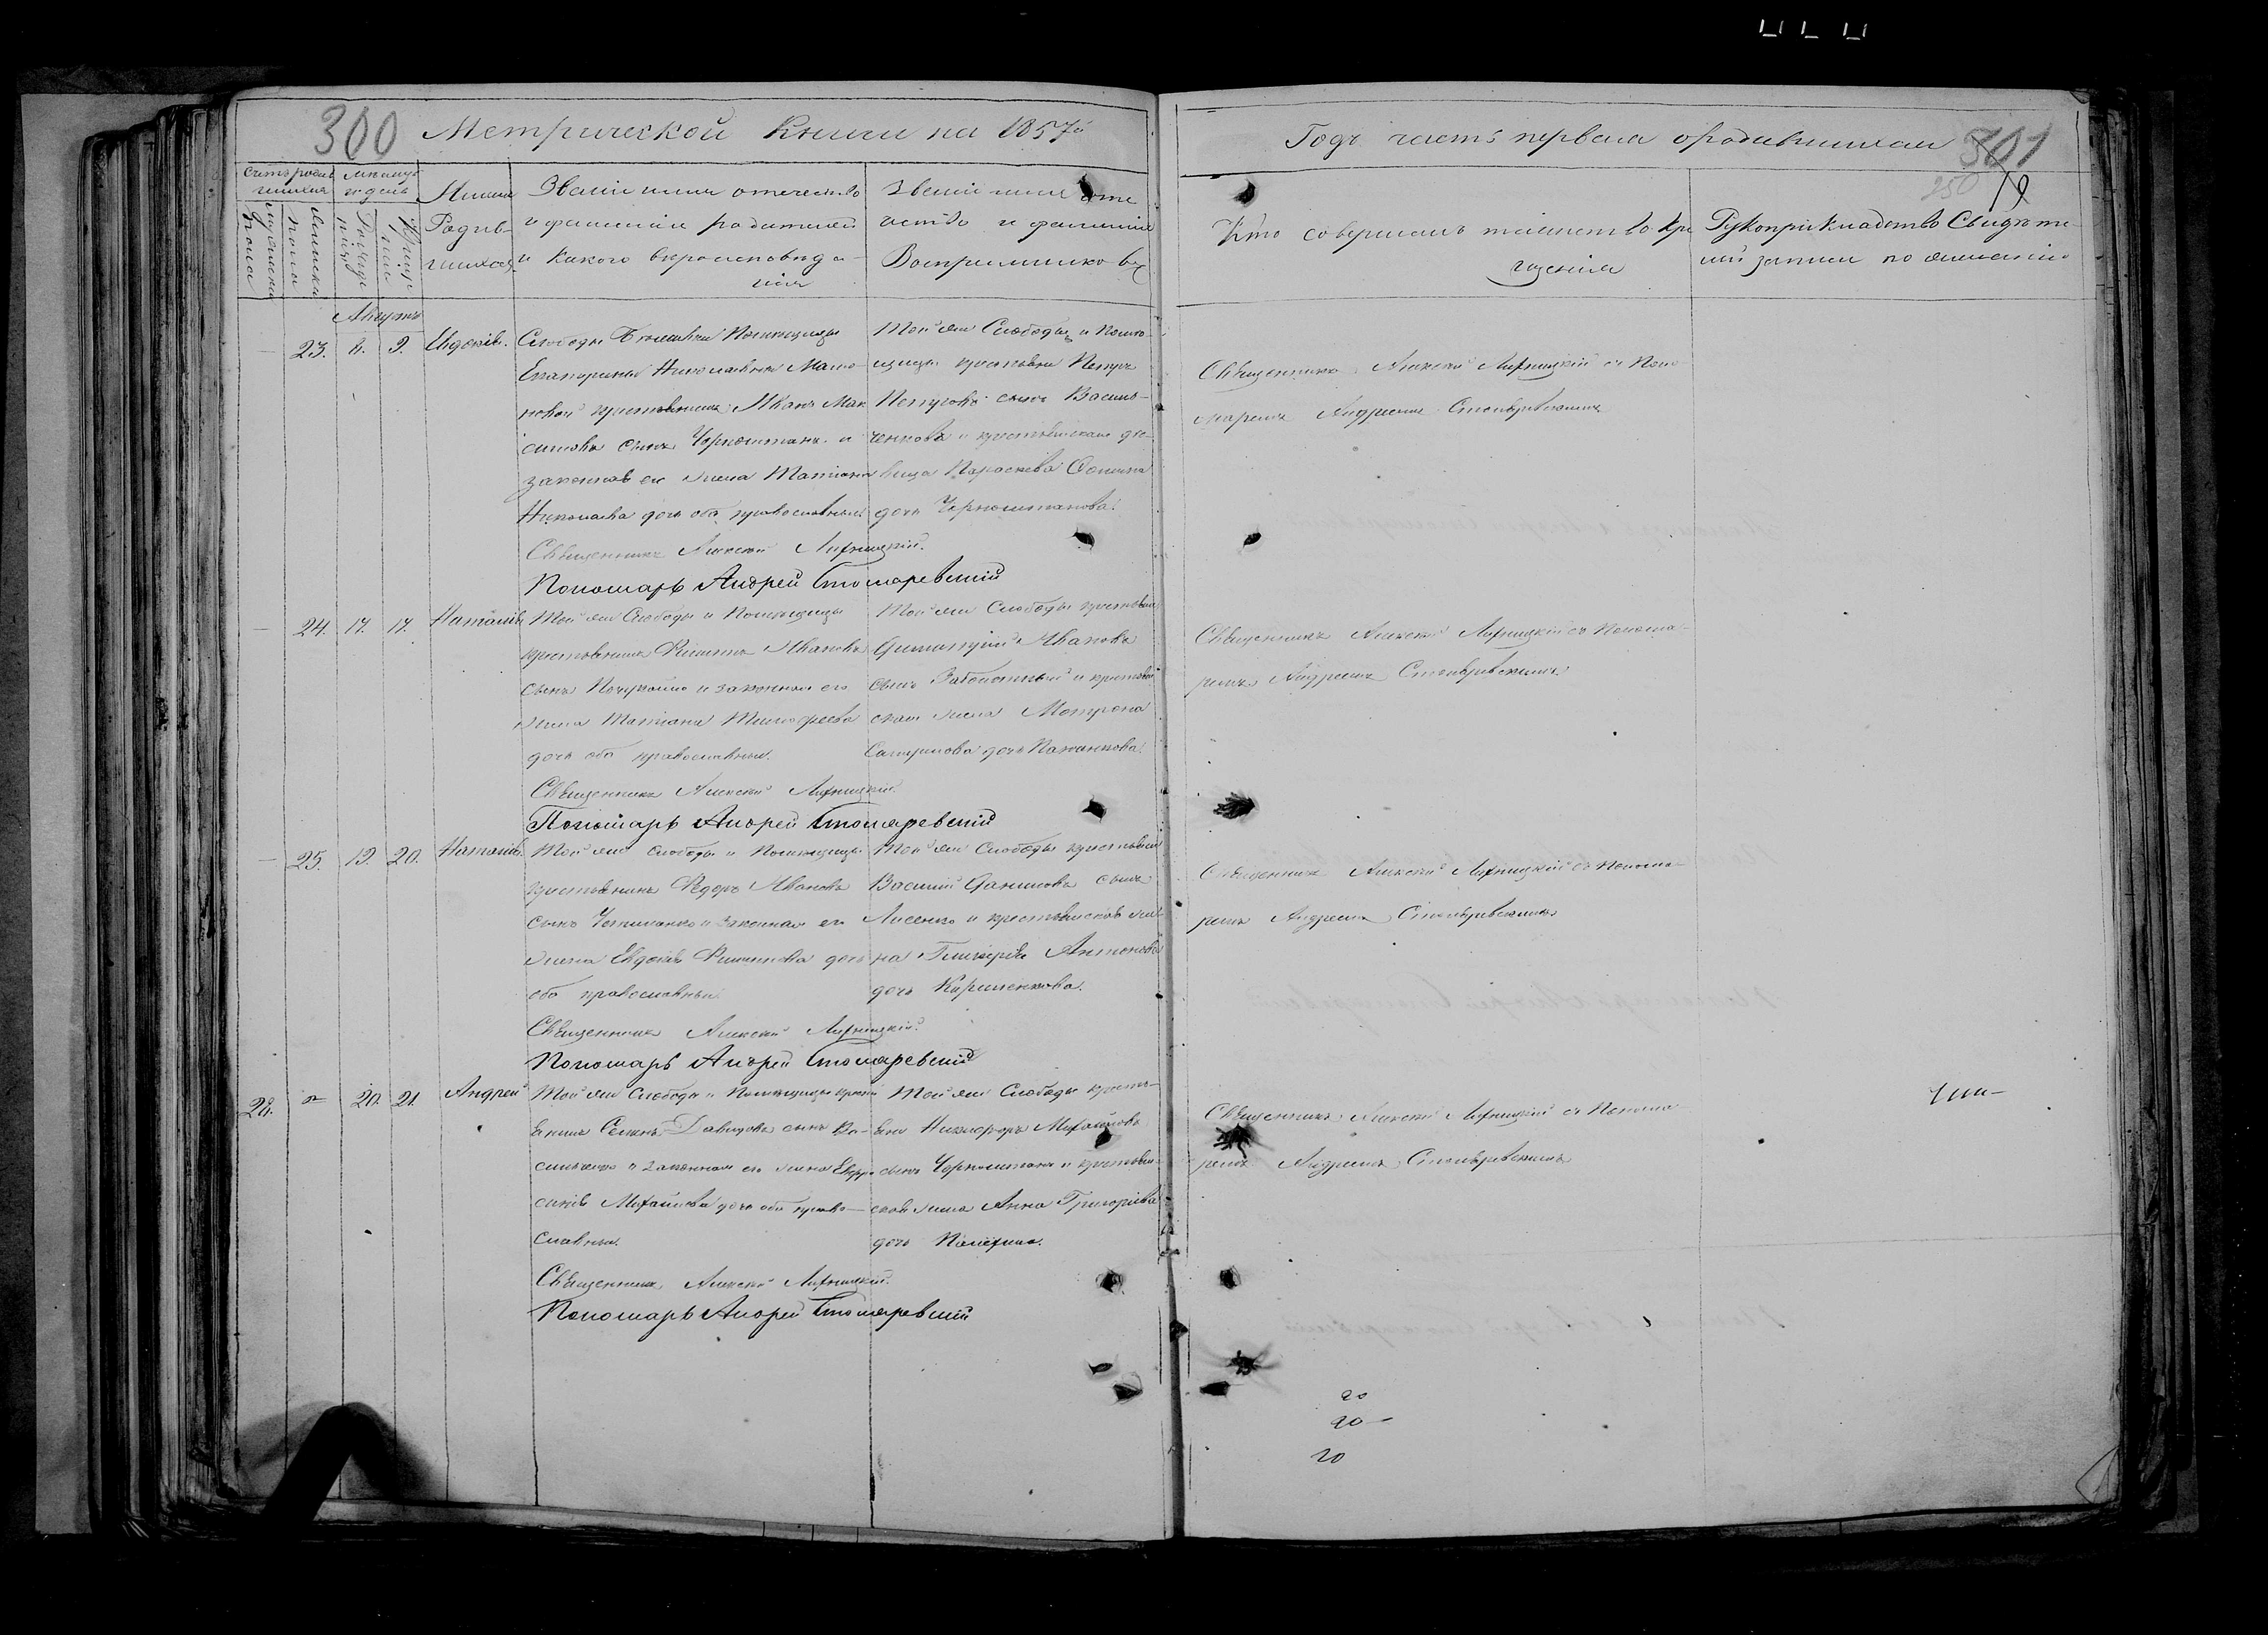 300 Метрической Книги на 1857й
Годъ часть первая о родившихся 501
250
Счетъ родив
шихся
Мужеска
пола
Женска
пола
Месяцъ
и день
Рожде
нія
Креще
нія
Имена
Родив-
шихся
Званіе имя отечество
и фамилія родителей
и какого вероисповеда-
нія
Званіе имя оте
чество и фамилія
Воспріемниковъ
Кто совершалъ таинство кре
щенія
Рукоприкладство Свидете
лей записи по желанію
Августъ
23. 8. 9. Евдокія.
Слободы Помещицы
Екатерины Николаевны
крестьянинъ Иванъ Мак
симовъ сынъ Чорноштанъ и
законная его жена Татіана
Николаева дочь оба православные
Священникъ Алексей Лифицкій.
Пономарь Андрей Столяревскій
Той же Слободы и Поме-
щицы крестьянъ Петръ
Петровъ сынъ Василь-
ченковъ и крестьянская де-
вица Параскева Осипова
дочь Чорноштанова.
Священникъ Алексей Лифицкій съ Поно-
маремъ Андреемъ Столяревскимъ
24. 17. 17. Наталія
Той же Слободы и Помещицы
крестьянинъ Филиппъ Ивановъ
сынъ и законная его
жена Татіана Тимофеева
дочь оба православные.
Священникъ Алексей Лифицкій.
Пономарь Андрей Столяревскій
Той же Слободы крестьян
Димитрій Ивановъ
сынъ и крестьян
ская жена Мотрона
дочь
Священникъ Алексей Лифицкій съ Понома-
ремъ Андреемъ Столяревскимъ
25. 19. 20. Наталія.
Той же Слободы и Помещицы
крестьянинъ Федоръ Ивановъ
сынъ и законная его
жена Евдокія Филиппова дочь
оба православные.
Священникъ Алексей Лифицкій.
Пономарь Андрей Столяревскій
Той же Слободы крестьян
Василій Даниловъ сынъ
Лисенко и крестьянская же-
на Гликерія Антонова
дочь Кириленкова.
Священникъ Алексей Лифицкій съ Понома-
ремъ Андреемъ Столяревскимъ
28. 20. 21. Андрей
Той же Слободы и Помещицы крест
янинъ Семенъ Давидовъ сынъ Ва-
сильченко и законная его жена Евфро
синія Михайлова дочь оба право-
славные.
Священникъ Алексей Лифицкій.
Пономарь Андрей Столяревскій
Той же Слободы кресть-
янъ Никифоръ Михайловъ
сынъ Чорноштанъ и крестьян-
ская жена Анна Григоріева
дочь
Священникъ Алексей Лифицкій съ Понома
ремъ Андреемъ Столяревскимъ
20
20
20